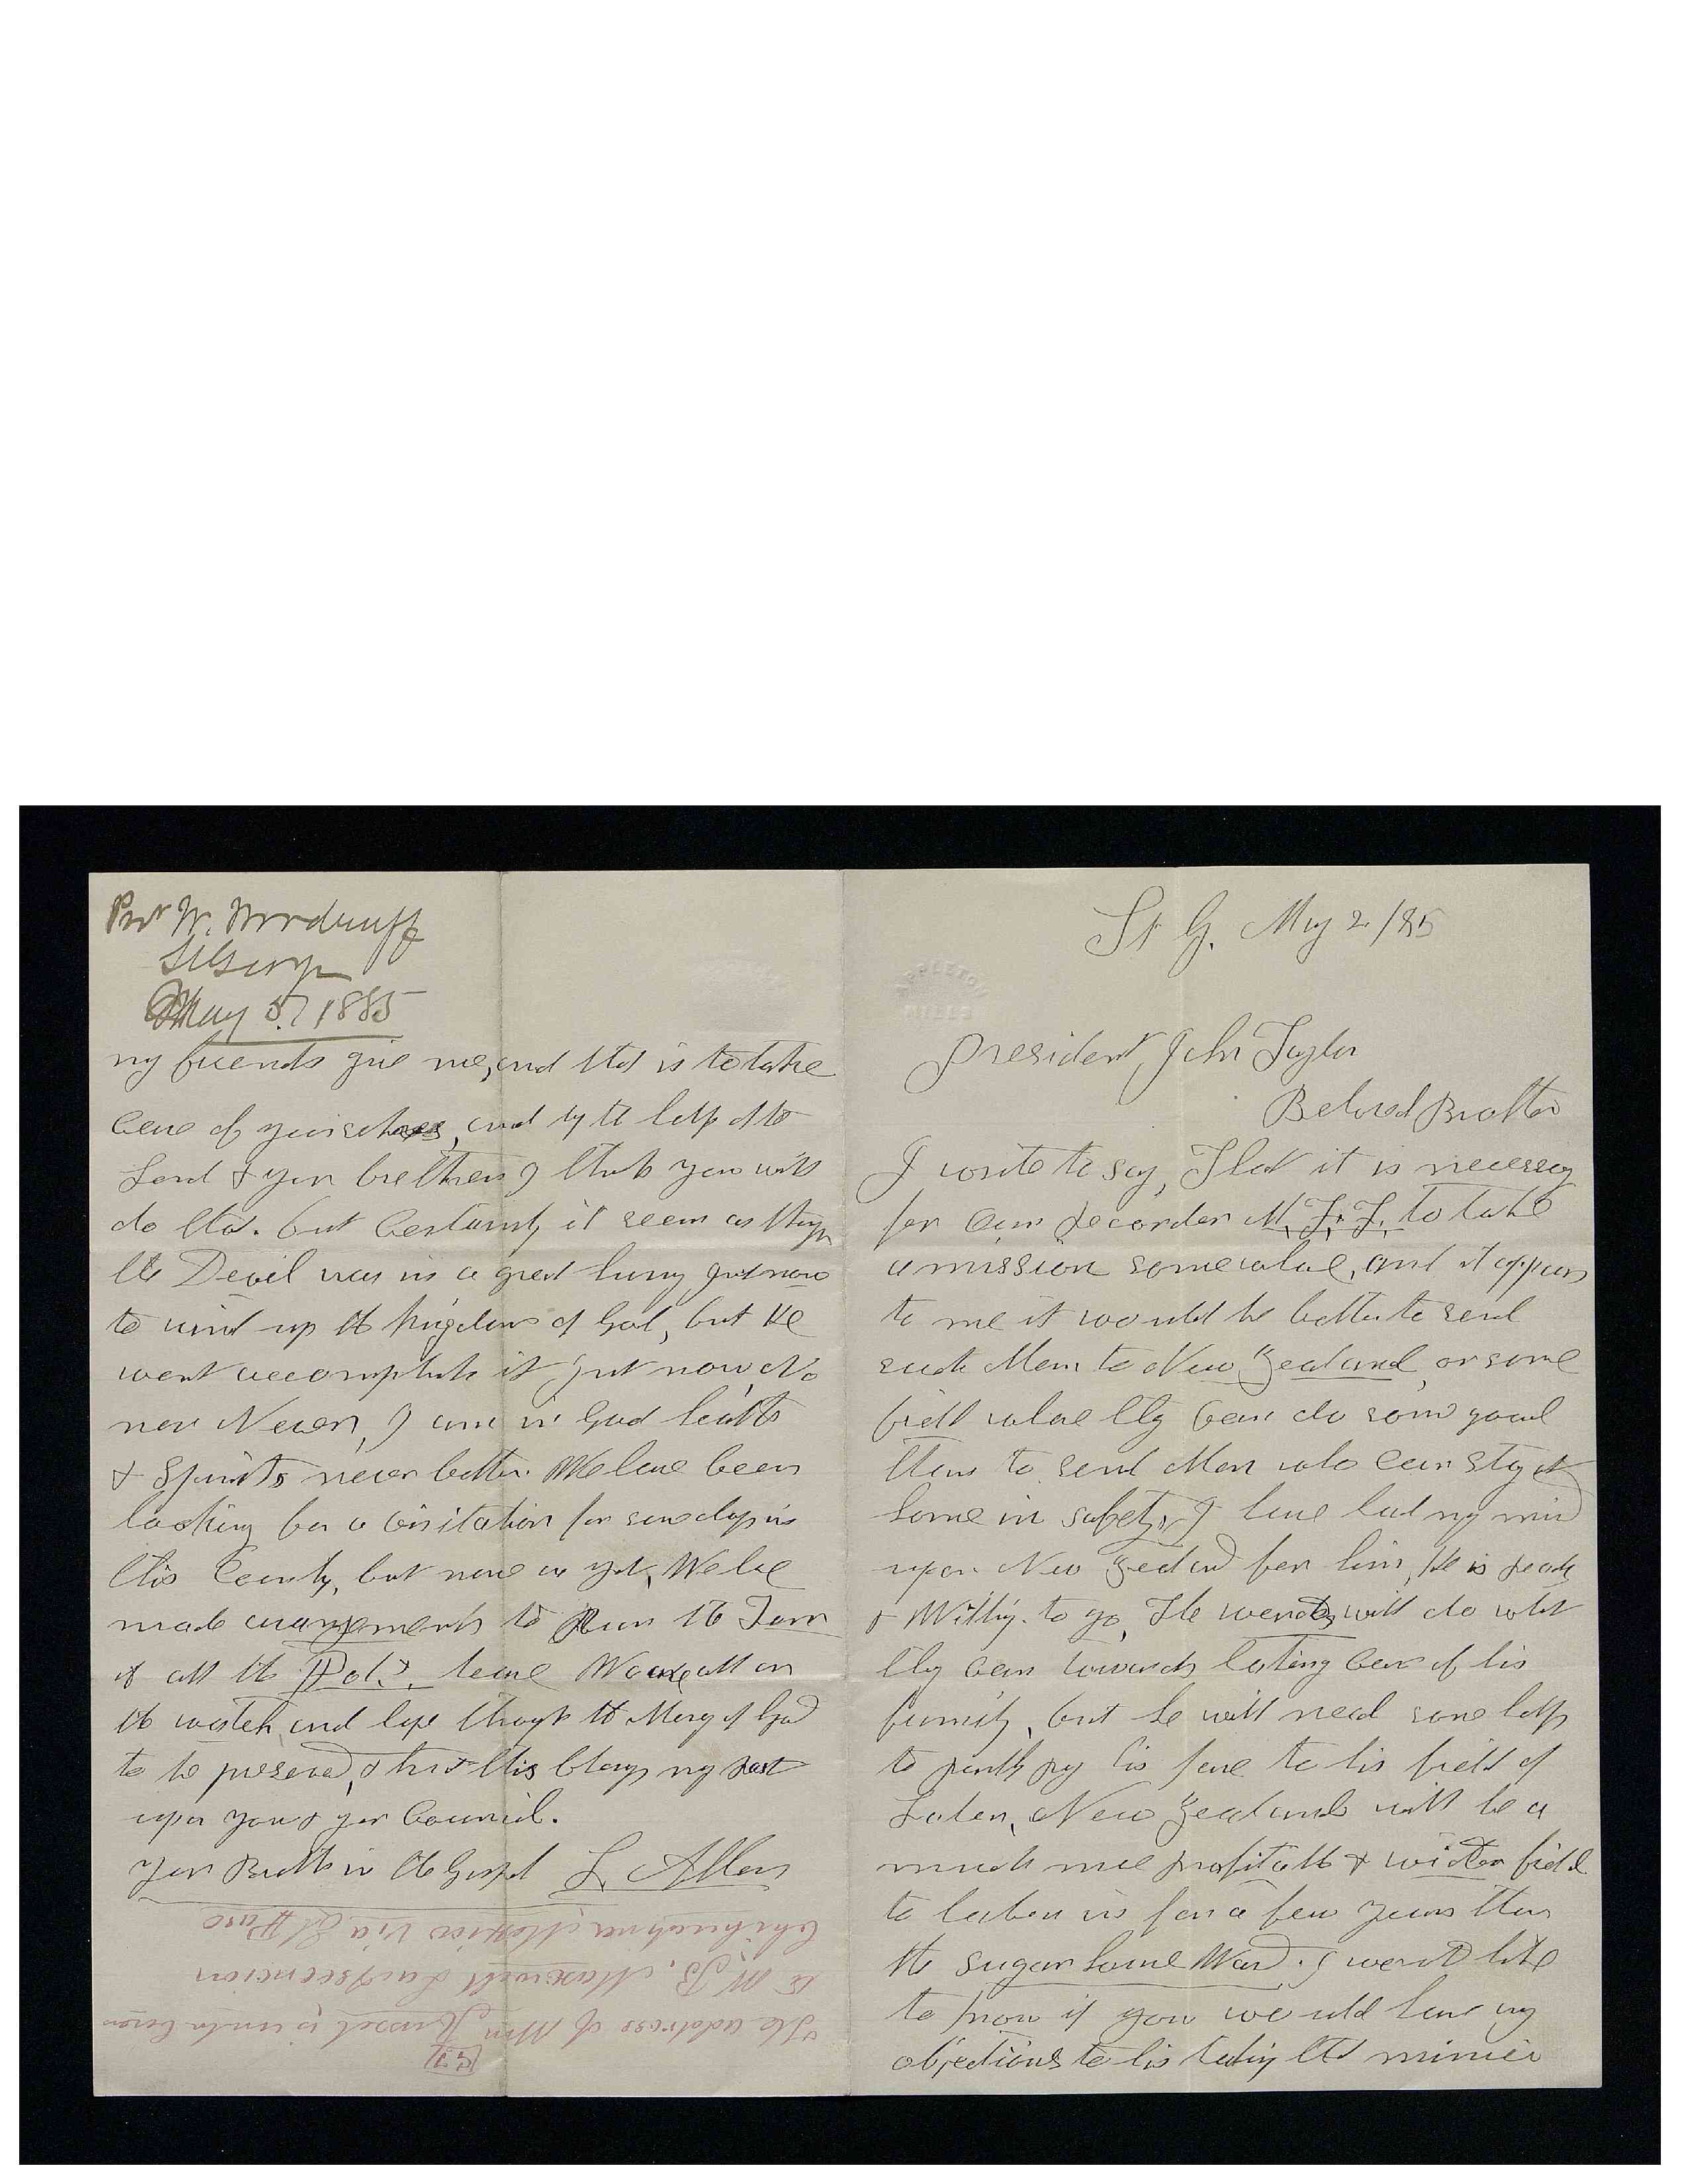 St G. May 2/85
APPLETON
MILLS
President John Taylor
Beloved Brother
I write to say, That it is necessary
for our Recorder M, F, F, to take
a mission somewhare, and it appears
to me it would be better to send
such Men to New Zealand, or some
field whare they Can do some good
then to send Men who Can stay at
home in safety, I have had my mind
upon New Zealand for him, He is ready
& Willing to go, The wards will do what
they Can towards taking Care of his
family, but he will need some help
to partly pay his fare to his field of
Labor, New Zealand will be a
much more profitable & wider field
to labor in for a few years than
the sugar house Ward. I would like
to know if you would have any
objections to his taking that mission
Prest W. Woodruff
St George
May 2 1885
my friends give me, and that is to take
Care of yourselves, and by the help of the
Lord & your brethren I think you will
do that. but Certainly it seems as though
the Devil was in a great hurry just now
to wind up the kingdom of God, but He
wont accomplish it just now, No
nor Never, I am in Good health
& Spirits never better. We have been
looking for a visitation for some days in
this County, but none as yet, We have
made arangements to Run the Tem
it all the Pol. leave We are all on
the watch and hope through the Mercy of God
to be preserved, & that this blessing may rest
upon you & your Council.
Your Brother in the Gospel L Allen
The address of Wm Russel is under Cover
to M, B, Maxwell La Ascencion
Chihuahua Mexico Via El Paso